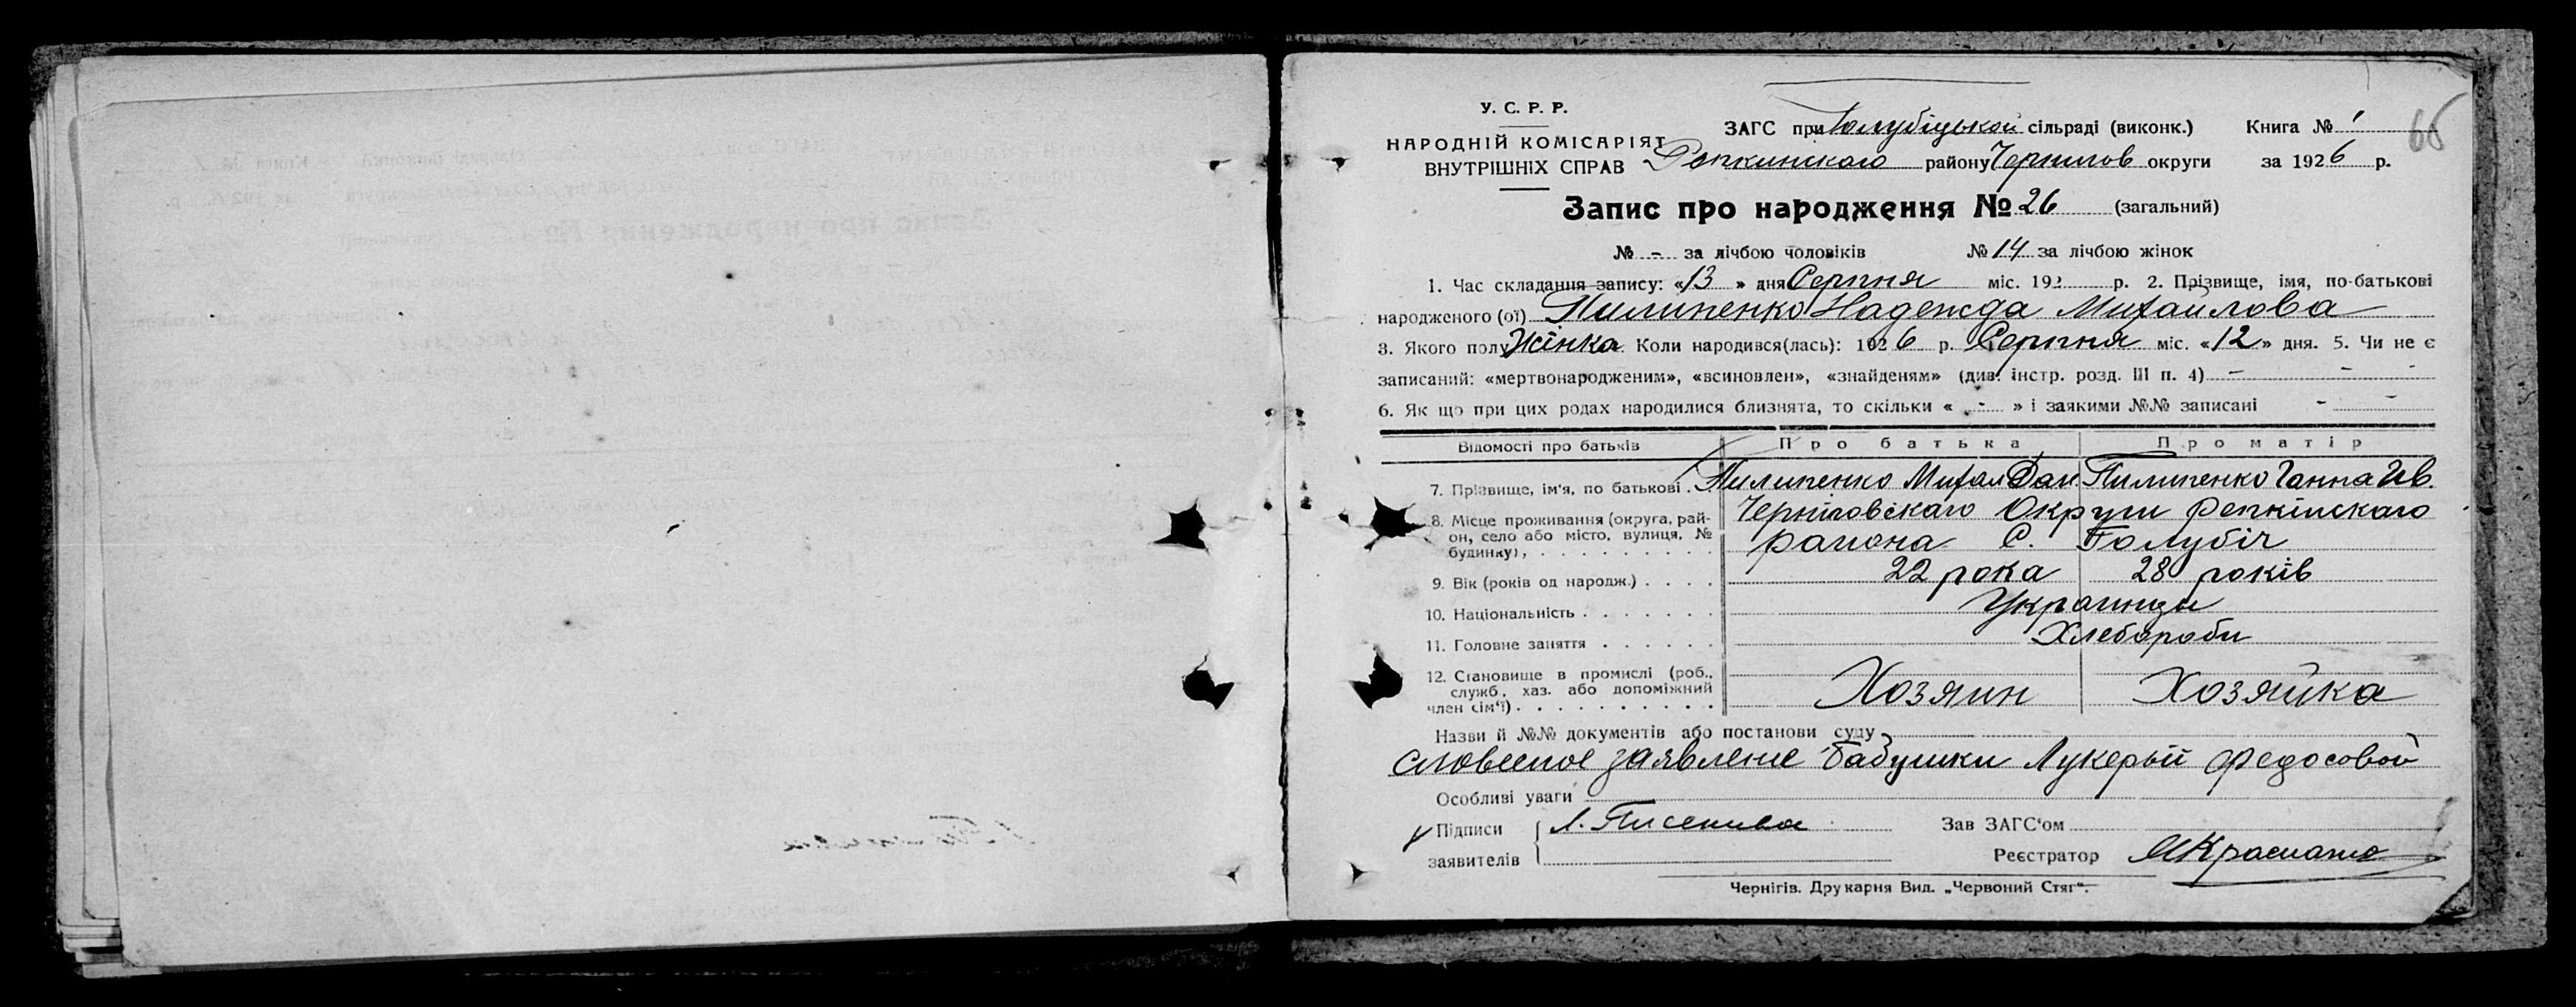 У. С. Р. Р.
НАРОДНІЙ КОМІСАРІЯТ
ВНУТРІШНІХ СПРАВ
ЗАГС при Голубіцькой сільраді (виконк.) Книга № 1
66
Репкинскаго району Чернигов округи за 1926 р.
Запис про народження № 26 (загальний)
№ - за лічбою чоловіків № 14 за лічбою жінок
1. Час складання запису: «13» дня Серпня міс. 192 р. 2. Прізвище, імя, по-батькові
народженого (ої) Пилипенко Надежда Михайлова
3. Якого полу Жінка. Коли народився(лась): 1926 р. Серпня міс. «12» дня. 5. Чи не є
записаний: «мертвонародженим», «всиновлен», «знайденям» (див. інстр. розд. III п. 4) - - -
6. Як що при цих родах народилися близнята, то скільки « - » і заякими №№ записані - -
Відомості про батьків Про батька Про матір
7. Прізвище, ім'я, по батькові . . Пилипенко Михаил Дан. Пилипенко Ганна Ив.
8. Місце проживання (округа, рай-
он, село або місто, вулиця, №
будинку), . . . . . . . . .
Черніговскаго Округи Репкінскаго
района С. Голубіч
9. Вік (років од народж.) . . . . 22 рока 28 років
10. Національність . . . . . . . Украинцы
11. Головне заняття . . . . . . Хлебороби
12. Становище в промислі (роб.,
служб., хаз. або допоміжний
член сім'ї) . . . . . . . . . .
Хозяин Хозяйка
Назви й №№ документів або постанови суду
словесное заявление бабушки Лукерьи Федосовой
Особливі уваги
Підписи
заявителів
Л.
Зав ЗАГС'ом
Реєстратор
Чернігів. Друкарня Вид. „Червоний Стяг“.